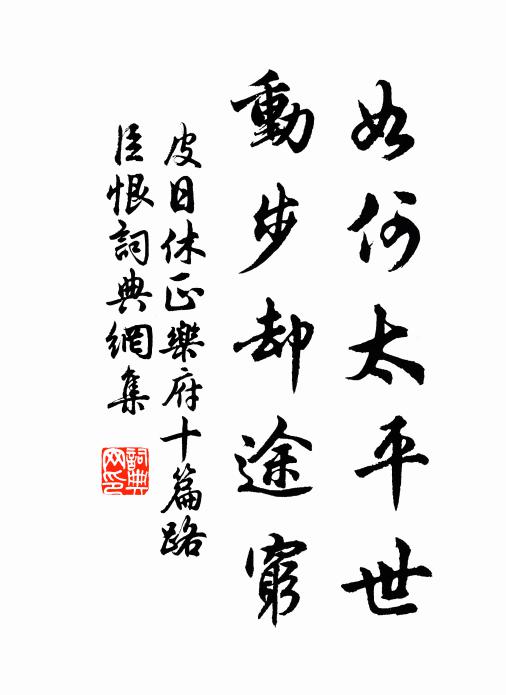 如何太平世
動步却途窮
皮日休正樂府十篇路
臣恨詞典網集
詞典网印